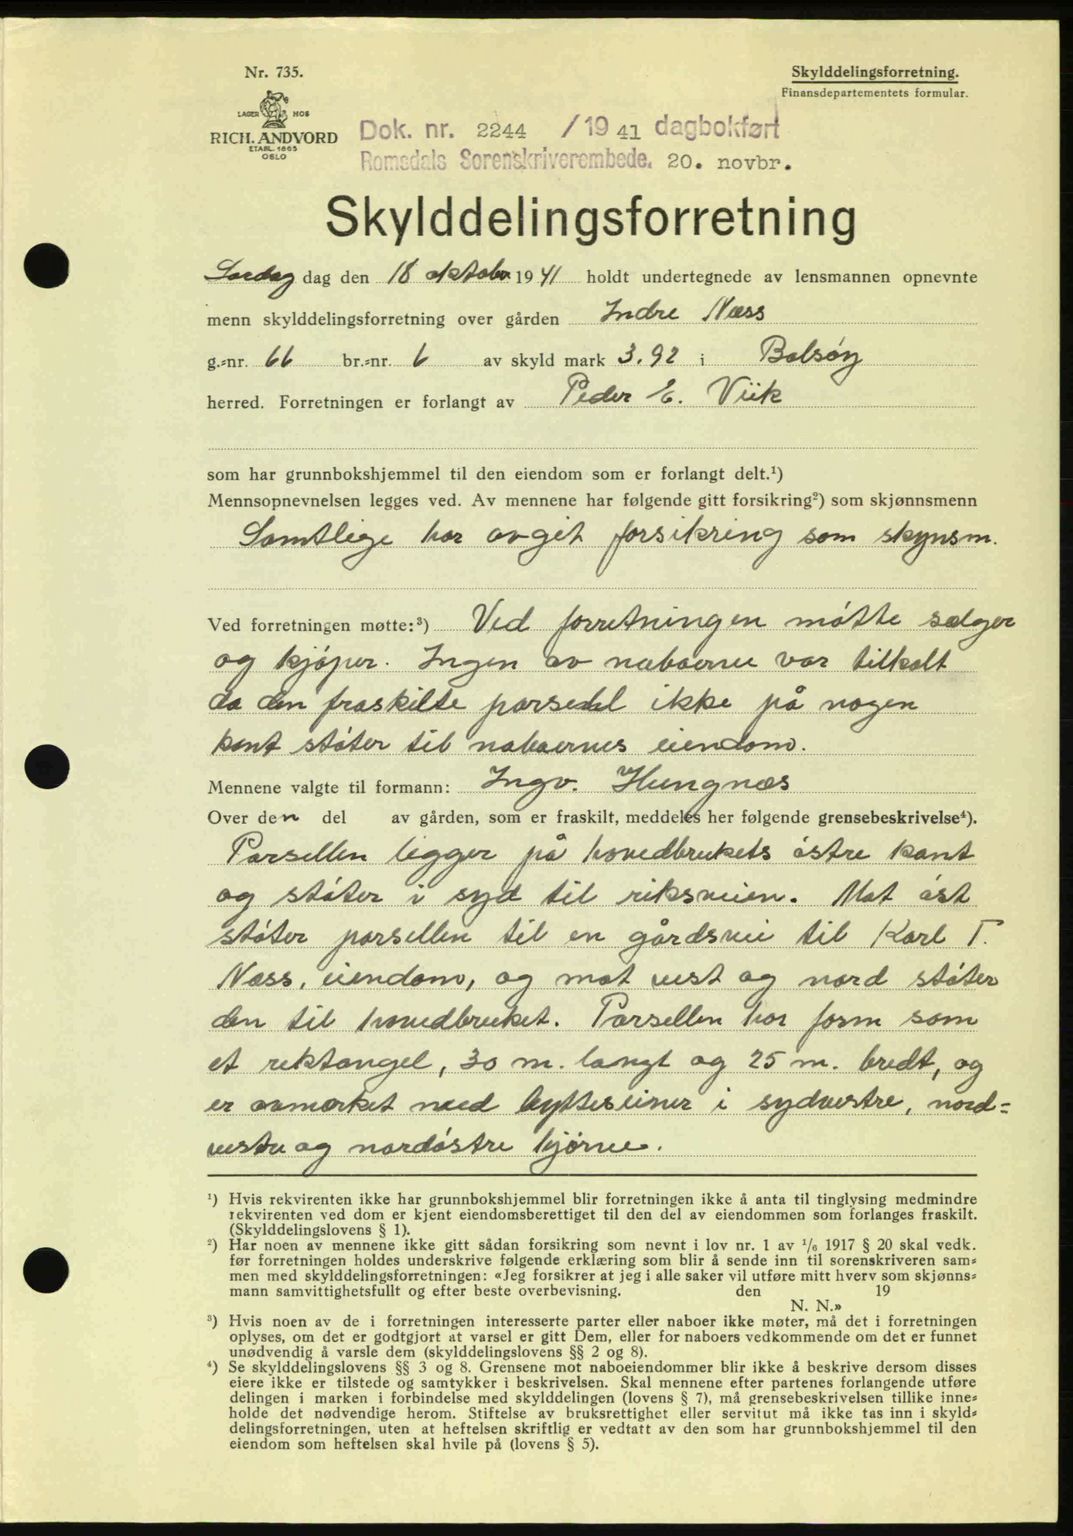 Nr. 735.
LAGER HOS
RICH. ANDVORD
ETABL. 1865
OSLO
Skylddelingsforretning.
Finansdepartementets formular.
Dok. nr. 2244 /1941 dagbokført
Romsdals Sorenskriverembede. 20. novbr.
Skylddelingsforretning
Lørdag dag den 18 oktober 1941 holdt undertegnede av lensmannen opnevnte
menn skylddelingsforretning over gården Indre Næss
g.-nr. 66 br.-nr. 6 av skyld mark 3.92 i Bolsøy
herred. Forretningen er forlangt av Peder E. Viik
som har grunnbokshjemmel til den eiendom som er forlangt delt.¹)
Mennsopnevnelsen legges ved. Av mennene har følgende gitt forsikring²) som skjønnsmenn
Samtlige har avgit forsikring som skynsm.
Ved forretningen møtte:³) Ved forretningen møtte sælger
og kjøper. Ingen av naboerne var tilkalt
da den fraskilte parsell ikke på nogen
kant støter til naboernes eiendom.
Mennene valgte til formann: Ingv. Hungnæs
Over den del av gården, som er fraskilt, meddeles her følgende grensebeskrivelse⁴).
Parsellen ligger på hovedbrukets østre kant
og støter i syd til riksveien. Mot øst
støter parsellen til en gårdsvei til Karl T.
Næss, eiendom, og mot vest og nord støter
den til hovedbruket. Parsellen har form som
et rektangel, 30 m. langt og 25 m. bredt, og
er avmerket med byttesteiner i sydvestre, nord=
vestre og nordøstre hjørne.
¹) Hvis rekvirenten ikke har grunnbokshjemmel blir forretningen ikke å anta til tinglysing medmindre
rekvirenten ved dom er kjent eiendomsberettiget til den del av eiendommen som forlanges fraskilt.
(Skylddelingslovens § 1).
²) Har noen av mennene ikke gitt sådan forsikring som nevnt i lov nr. 1 av ¹/₆ 1917 § 20 skal vedk.
før forretningen holdes underskrive følgende erklæring som blir å sende inn til sorenskriveren sam=
men med skylddelingsforretningen: «Jeg forsikrer at jeg i alle saker vil utføre mitt hverv som skjønns=
mann samvittighetsfullt og efter beste overbevisning. den 19
N. N.»
³) Hvis noen av de i forretningen interesserte parter eller naboer ikke møter, må det i forretningen
oplyses, om det er godtgjort at varsel er gitt Dem, eller for naboers vedkommende om det er funnet
unødvendig å varsle dem (skylddelingslovens §§ 2 og 8).
⁴) Se skylddelingslovens §§ 3 og 8. Grensene mot naboeiendommer blir ikke å beskrive dersom disses
eiere ikke er tilstede og samtykker i beskrivelsen. Skal mennene efter partenes forlangende utføre
delingen i marken i forbindelse med skylddelingen (lovens § 7), må grensebeskrivelsen tillike inne=
holde det nødvendige herom. Stiftelse av bruksrettighet eller servitut må ikke tas inn i skyld=
delingsforretningen, uten at heftelsen skriftlig er vedtatt av den som har grunnbokshjemmel til den
eiendom som heftelsen skal hvile på (lovens § 5).